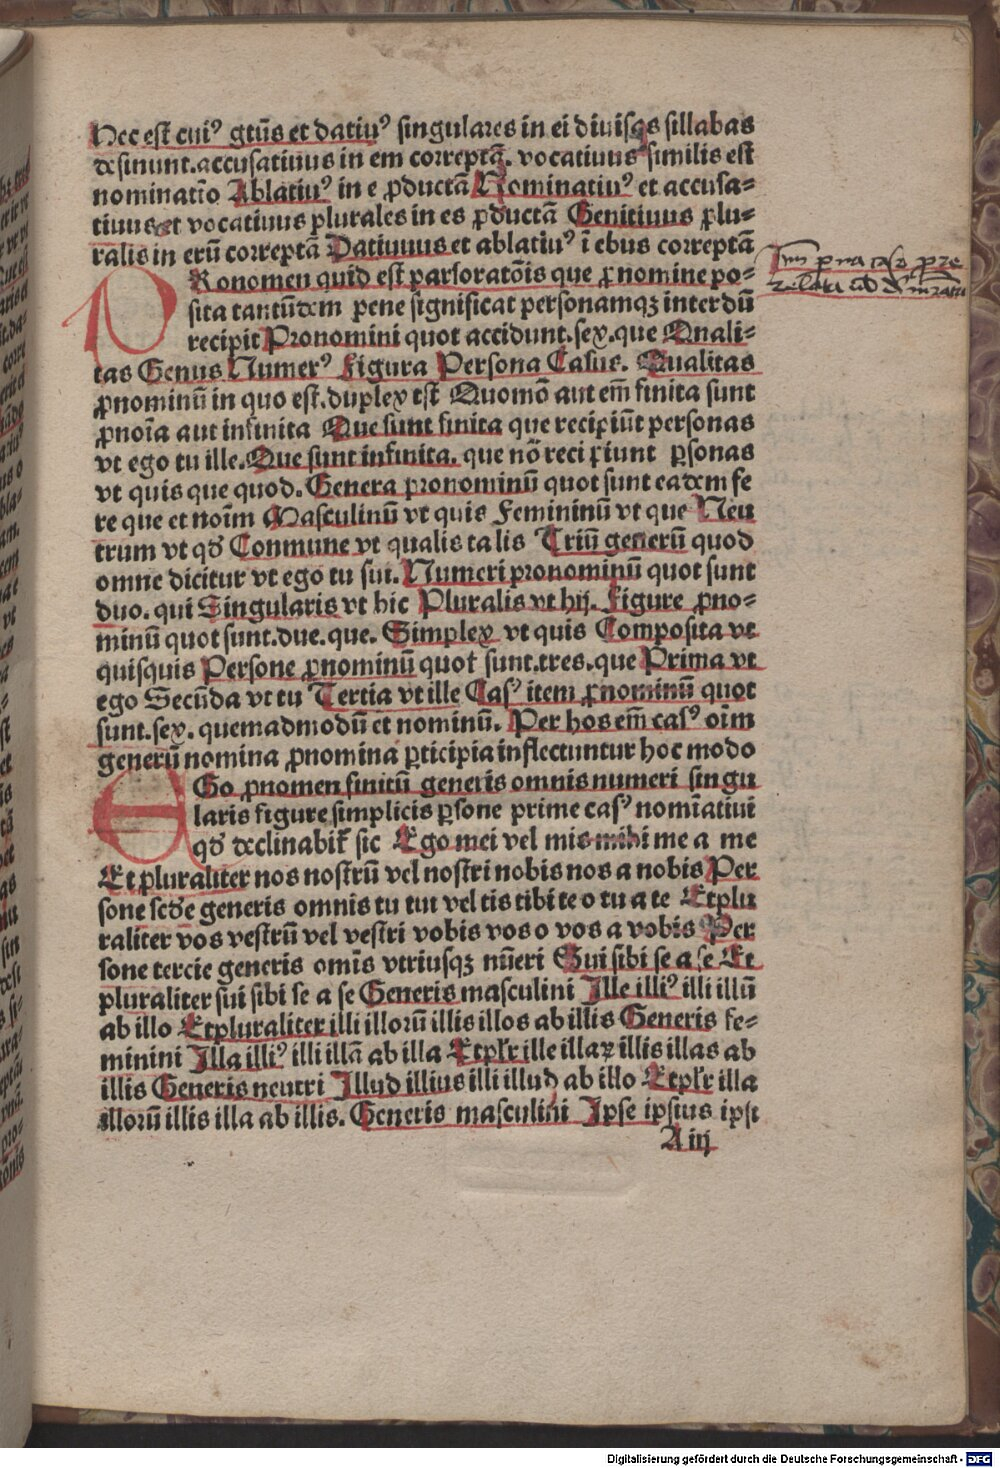 Hec est cuiꝰ gtūs et datiuꝰ singulares in ei diuisas sillabas
desinunt. accusatiuus in em correptā. vocatiuus similis est
nominatīo Ablatiuꝰ in e ꝓductā Nominatiuꝰ et accusa⸗
tiuus et vocatiuus plurales in es ꝓductā Genitiuus plu⸗
ralis in erū correptā Datiuus et ablatiuꝰ ī ebus correptā
PRonomen quid est pars oratōis que ꝓ nomine po⸗
sita tantūdem pene significat personamqꝫ interdū
recipit Pronomini quot accidunt. sex. que Quali⸗
tas Genus Numerꝰ Figura Persona Casus. Qualitas
ꝓnominū in quo est. duplex est Quomō aut em̄ finita sunt
ꝓnoīa aut infinita Que sunt finita que recipiūt personas
vt ego tu ille. Que sunt infinita. que nō recipiunt ꝑsonas
vt quis que quod. Genera pronominū quot sunt eadem fe
re que et noīm Masculinū vt quis Femininū vt que Neu
trum vt qḋ Conmune vt qualis talis Triū generū quod
omne dicitur vt ego tu sui. Numeri pronominū quot sunt
duo. qui Singularis vt hic Pluralis vt hij. Figure ꝓno⸗
minū quot sunt. due. que. Simplex vt quis Composita vt
quisquis Persone ꝓnominū quot sunt. tres. que Prima vt
ego Secūda vt tu Tertia vt ille Casꝰ item ꝓnominū quot
sunt. sex. quemadmodū et nominū. Per hos em̄ casꝰ oīm
generū nomina ꝓnomina ꝑticipia inflectuntur hoc modo
EGo ꝓnomen finitū generis omnis numeri singu
laris figure simplicis ꝑsone prime casꝰ nomīatiui
qḋ declinabit̄ sic Ego mei vel mis mihi me a me
Et pluraliter nos nostrū vel nostri nobis nos a nobis Per
sone scḋe generis omnis tu tui vel tis tibi te o tu a te Et plu
raliter vos vestrū vel vestri vobis vos o vos a vobis Per
sone tercie generis omīs vtriusqꝫ nūeri Sui sibi se a se Et
pluraliter sui sibi se a se Generis masculini Ille illiꝰ illi illū
ab illo Et pluraliter illi illorū illis illos ab illis Generis fe⸗
minini Illa illiꝰ illi illā ab illa Et plr̄ ille illaꝝ illis illas ab
illis Generis neutri Illud illius illi illud ab illo Et plr̄ illa
illorū illis illa ab illis. Generis masculini Ipse ipsius ipsi
A iij
Digitalisierung gefördert durch die Deutsche Forschungsgemeinschaft - DFG